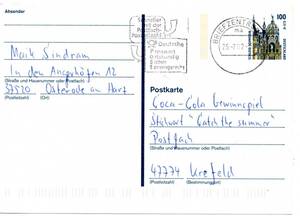 Absender
Mark Sindram
In den Angerhöfen 12
(Straße und Hausnummer oder Postfach)
37520 Osterode am Harz
(Postleitzahl) (Ort)
Deutsche
BRIEFZENTRUM
100
Postkarte
Coca-Cola Gewinnspiel
Stichwort "Catch the summer"
Postfach
(Straße und Hausnummer oder Postfach)
47774 Krefeld
(Postleitzahl) (Bestimmungsort)